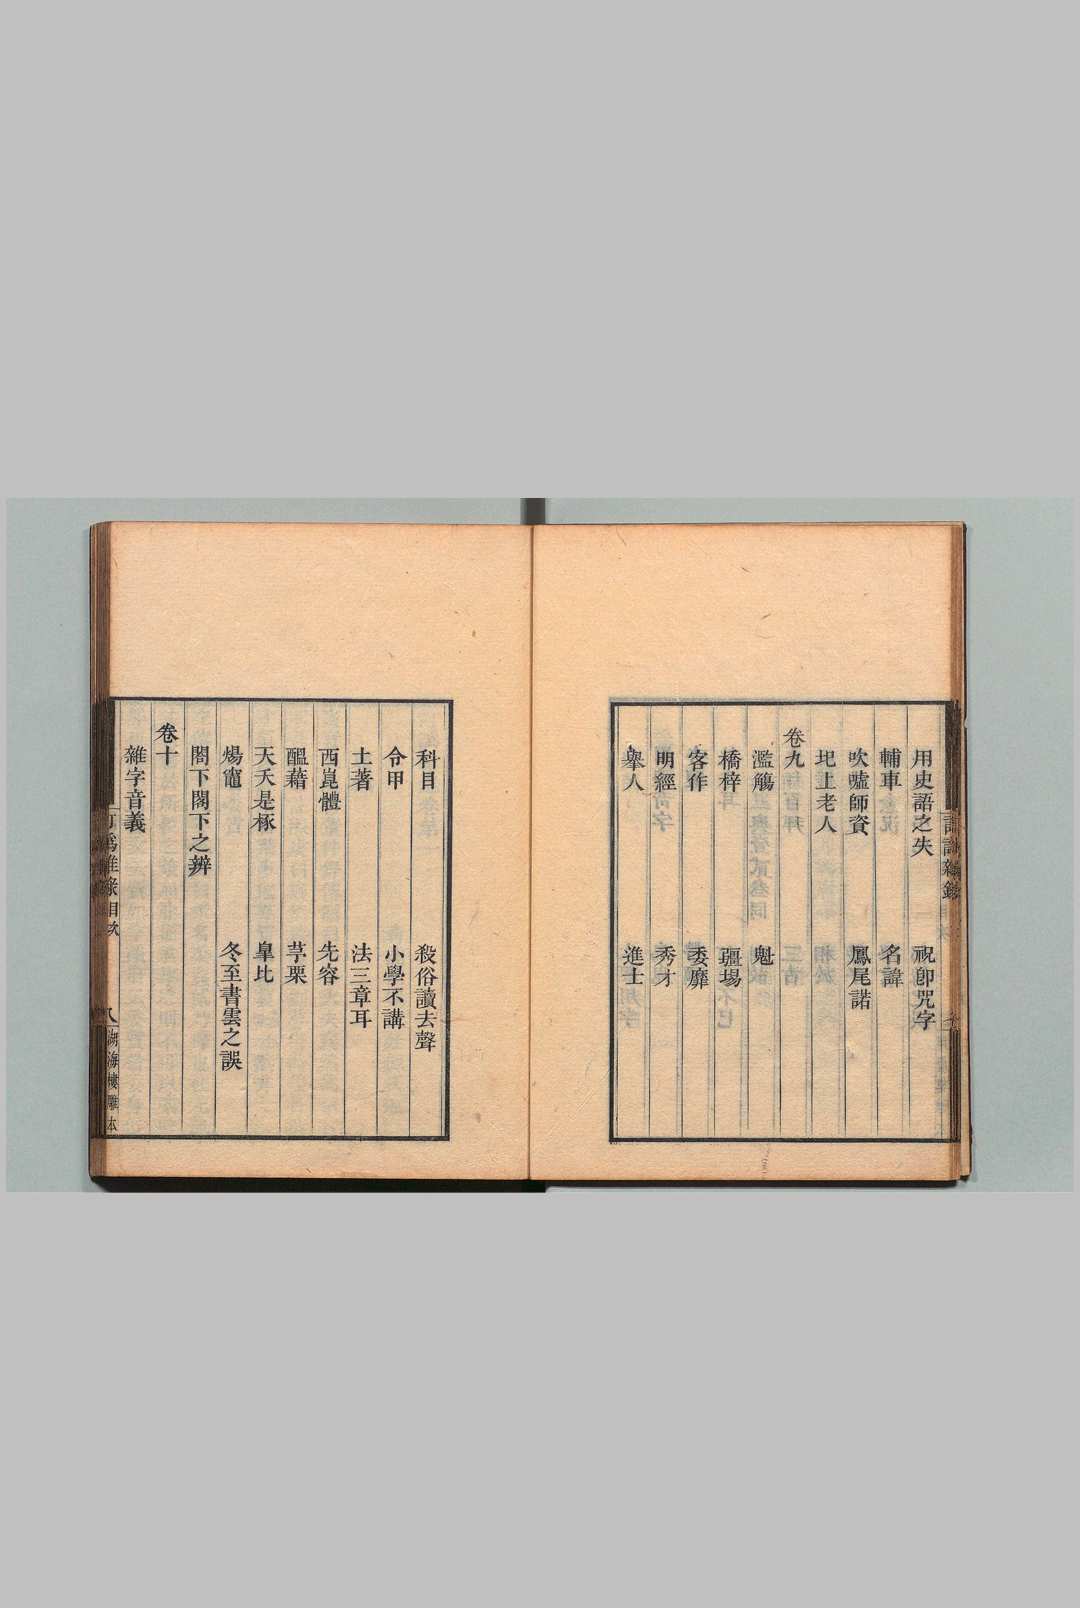 用史語之失　祝卽咒字
輔車　名諱
吹噓師資　鳳尾諾
圯上老人
卷九
濫觴　魁
橋梓　疆埸
客作　委靡
明經　秀才
舉人　進士
科目　殺俗讀去聲
令甲　小學不講
土著　法三章耳
西崑體　先容
醞藉　芧栗
天夭是椓　皐比
煬竈　冬至書雲之誤
閤下閣下之辨
卷十
雜字音義
訂譌雜錄目次　八　湖海樓雕本